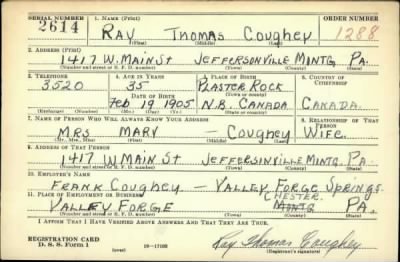 SERIAL NUMBER 1. NAME (Print) ORDER NUMBER
2614 RAY THOMAS Coughey 1288
(First) (Middle) (Last)
2. ADDRESS (Print)
1417 W. MAIN St JEFFERSONVILLE MONTG PA.
(Number and street or R. F. D. number) (Town) (County) (State)
3. TELEPHONE 4. AGE IN YEARS 5. PLACE OF BIRTH 6. COUNTRY OF CITIZENSHIP
3520 35 PLASTER ROCK
DATE OF BIRTH (Town or county)
Feb 19 1905 N.B. CANADA CANADA.
(Exchange) (Number) (Mo.) (Day) (Yr.) (State or country)
7. NAME OF PERSON WHO WILL ALWAYS KNOW YOUR ADDRESS 8. RELATIONSHIP OF THAT PERSON
MRS MARY — Coughey WIFE.
(Mr., Mrs., Miss) (First) (Middle) (Last)
9. ADDRESS OF THAT PERSON
1417 W MAIN St JEFFERSINVILLE MONTG. PA.
(Number and street or R. F. D. number) (Town) (County) (State)
10. EMPLOYER'S NAME
FRANK Coughey — VALLEY FORGE SPRINGS
11. PLACE OF EMPLOYMENT OR BUSINESS CHESTER.
VALLEY FORGE MONTG PA.
(Number and street or R. F. D. number) (Town) (County) (State)
I AFFIRM THAT I HAVE VERIFIED ABOVE ANSWERS AND THAT THEY ARE TRUE.
REGISTRATION CARD
D. S. S. Form 1 (over) Ray Thomas Coughey